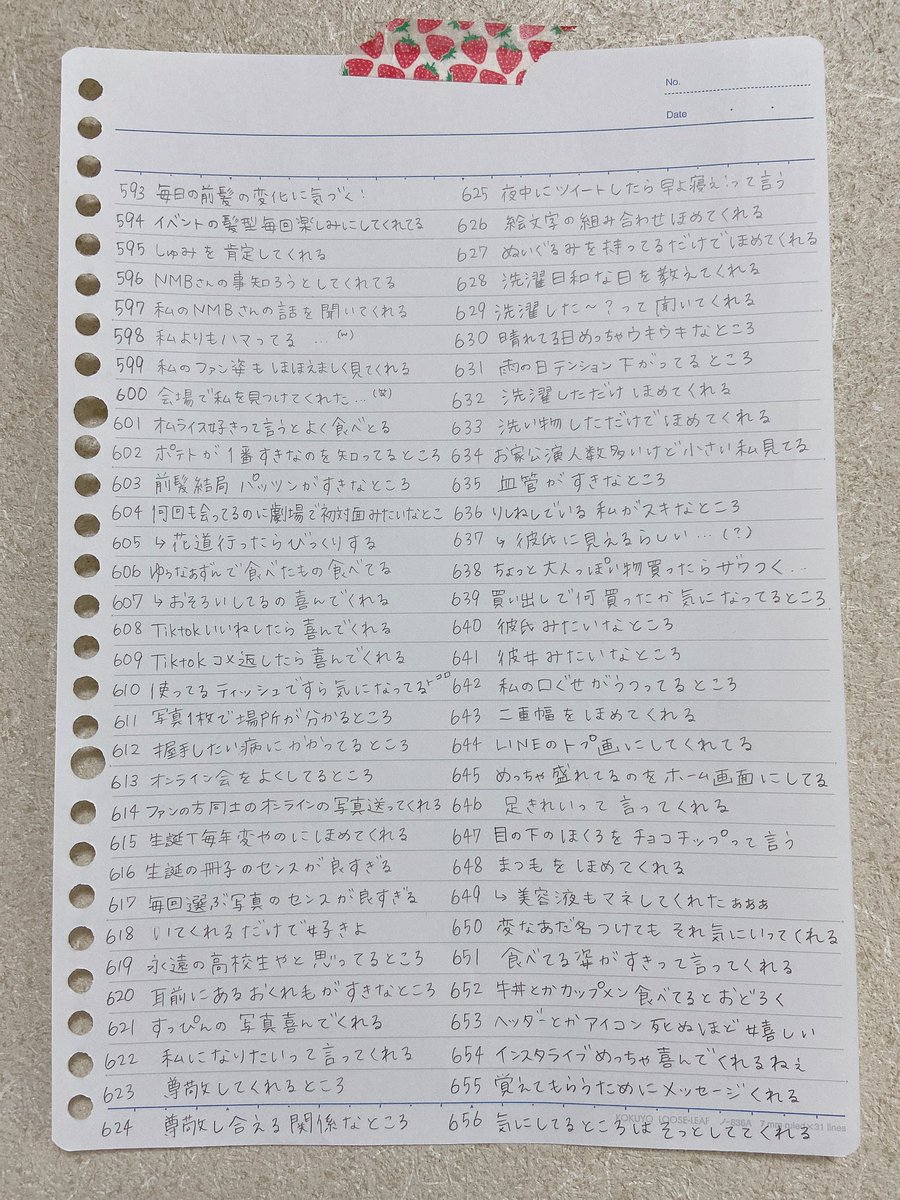 No.
Date
593 毎日の前髪の変化に気づく!
594 イベントの髪型毎回楽しみにしてくれてる
595 しゅみを肯定してくれる
596 NMBさんの事知ろうとしてくれてる
597 私のNMBさんの話を聞いてくれる
598 私よりもハマってる …
599 私のファン姿もほほえましく見てくれる
600 会場で私を見つけてくれた…(笑)
601 オムライス好きって言うとよく食べとる
602 ポテトが1番すきなのを知ってるところ
603 前髪結局パッツンがすきなところ
604 何回も会ってるのに劇場で初対面みたいなとこ
605 ↳花道行ったらびっくりする
606 ゆぅなぁずんで食べたもの食べてる
607 ↳おそろいしてるの喜んでくれる
608 Tiktokいいねしたら喜んでくれる
609 Tiktokコメ返したら喜んでくれる
610 使ってるティッシュですら気になってるトコロ
611 写真1枚で場所が分かるところ
612 握手したい病にかかってるところ
613 オンライン会をよくしてるところ
614 ファンの方同士のオンラインの写真送ってくれる
615 生誕T毎年変やのにほめてくれる
616 生誕の冊子のセンスが良すぎる
617 毎回選ぶ写真のセンスが良すぎる
618 いてくれるだけで好きよ
619 永遠の高校生やと思ってるところ
620 耳前にあるおくれ毛がすきなところ
621 すっぴんの写真喜んでくれる
622 私になりたいって言ってくれる
623 尊敬してくれるところ
624 尊敬し合える関係なところ
625 夜中にツイートしたら早よ寝ぇ!って言う
626 絵文字の組み合わせほめてくれる
627 ぬいぐるみを持ってるだけでほめてくれる
628 洗濯日和な日を教えてくれる
629 洗濯した〜?って聞いてくれる
630 晴れてる日めっちゃウキウキなところ
631 雨の日テンション下がってるところ
632 洗濯しただけほめてくれる
633 洗い物しただけでほめてくれる
634 お家公演人数多いけど小さい私見てる
635 血管がすきなところ
636 りりねしている私がスキなところ
637 ↳彼氏に見えるらしい…(?)
638 ちょっと大人っぽい物買ったらザワつく…
639 買い出しで何買ったか気になってるところ
640 彼氏みたいなところ
641 彼女みたいなところ
642 私の口ぐせがうつってるところ
643 二重幅をほめてくれる
644 LINEのトプ画にしてくれてる
645 めっちゃ盛れてるのをホーム画面にしてる
646 足きれいって言ってくれる
647 目の下のほくろをチョコチップって言う
648 まつ毛をほめてくれる
649 ↳美容液もマネしてくれたぁぁぁ
650 変なあだ名つけてもそれ気にいってくれる
651 食べてる姿がすきって言ってくれる
652 牛丼とかカップメン食べてるとおどろく
653 ヘッダーとかアイコン死ぬほど嬉しい
654 インスタライブめっちゃ喜んでくれるねぇ
655 覚えてもらうためにメッセージくれる
656 気にしてるところはそっとしててくれる
KOKUYO LOOSE-LEAF ノ-836A 7mm ruled×31 lines